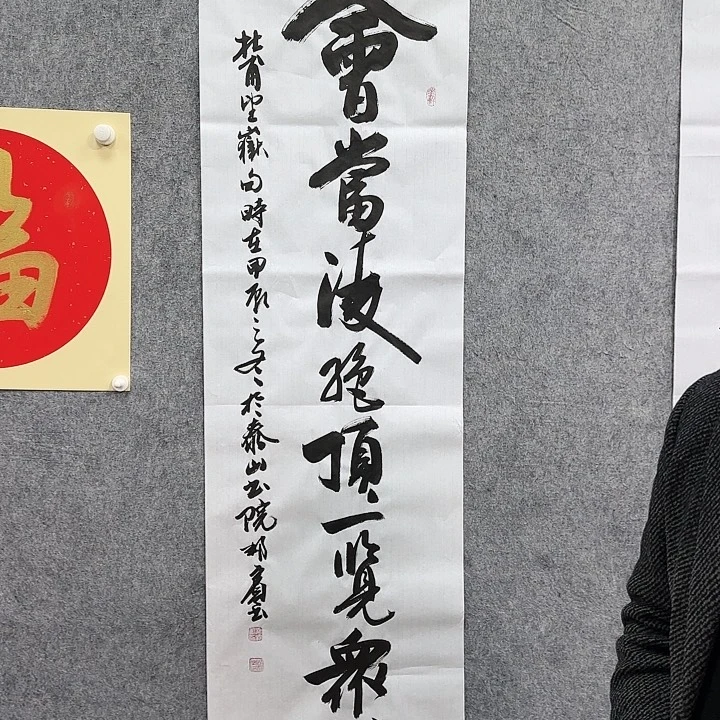 會當凌絕頂一覽衆
杜甫望嶽句時在甲辰之冬於泰山書院邦賓書
福